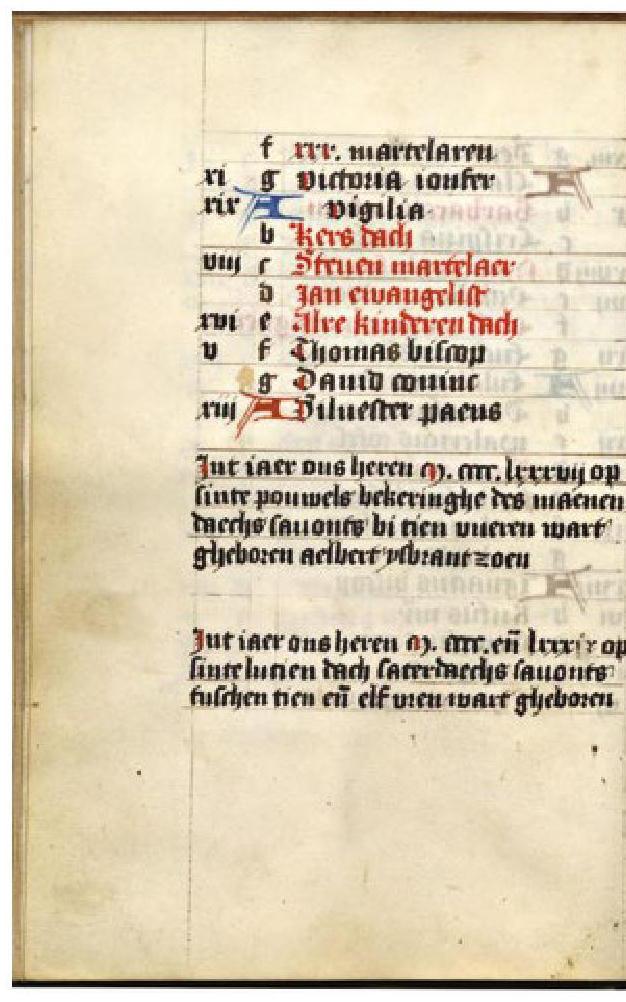 f xxx. martelaren
xi g Victoria ioufer
xix A Vigilia
b Kers dach
viij c Steuen martelaer
d Jan ewangelist
xvi e Alre kinderen dach
v f Thomas biscop
g Dauid coninc
xiij A Siluester paeus
Int iaer ons heren M. cccc. lxxxvij op
sinte pouwels bekeringhe des maenen
daechs sauonts bi tien vueren wart
gheboren aelbert ysbrant zoen
Int iaer ons heren M. cccc. en̄ lxxxix op
sinte lucien dach saterdaechs sauonts
tusschen tien en̄ elf vren wart gheboren